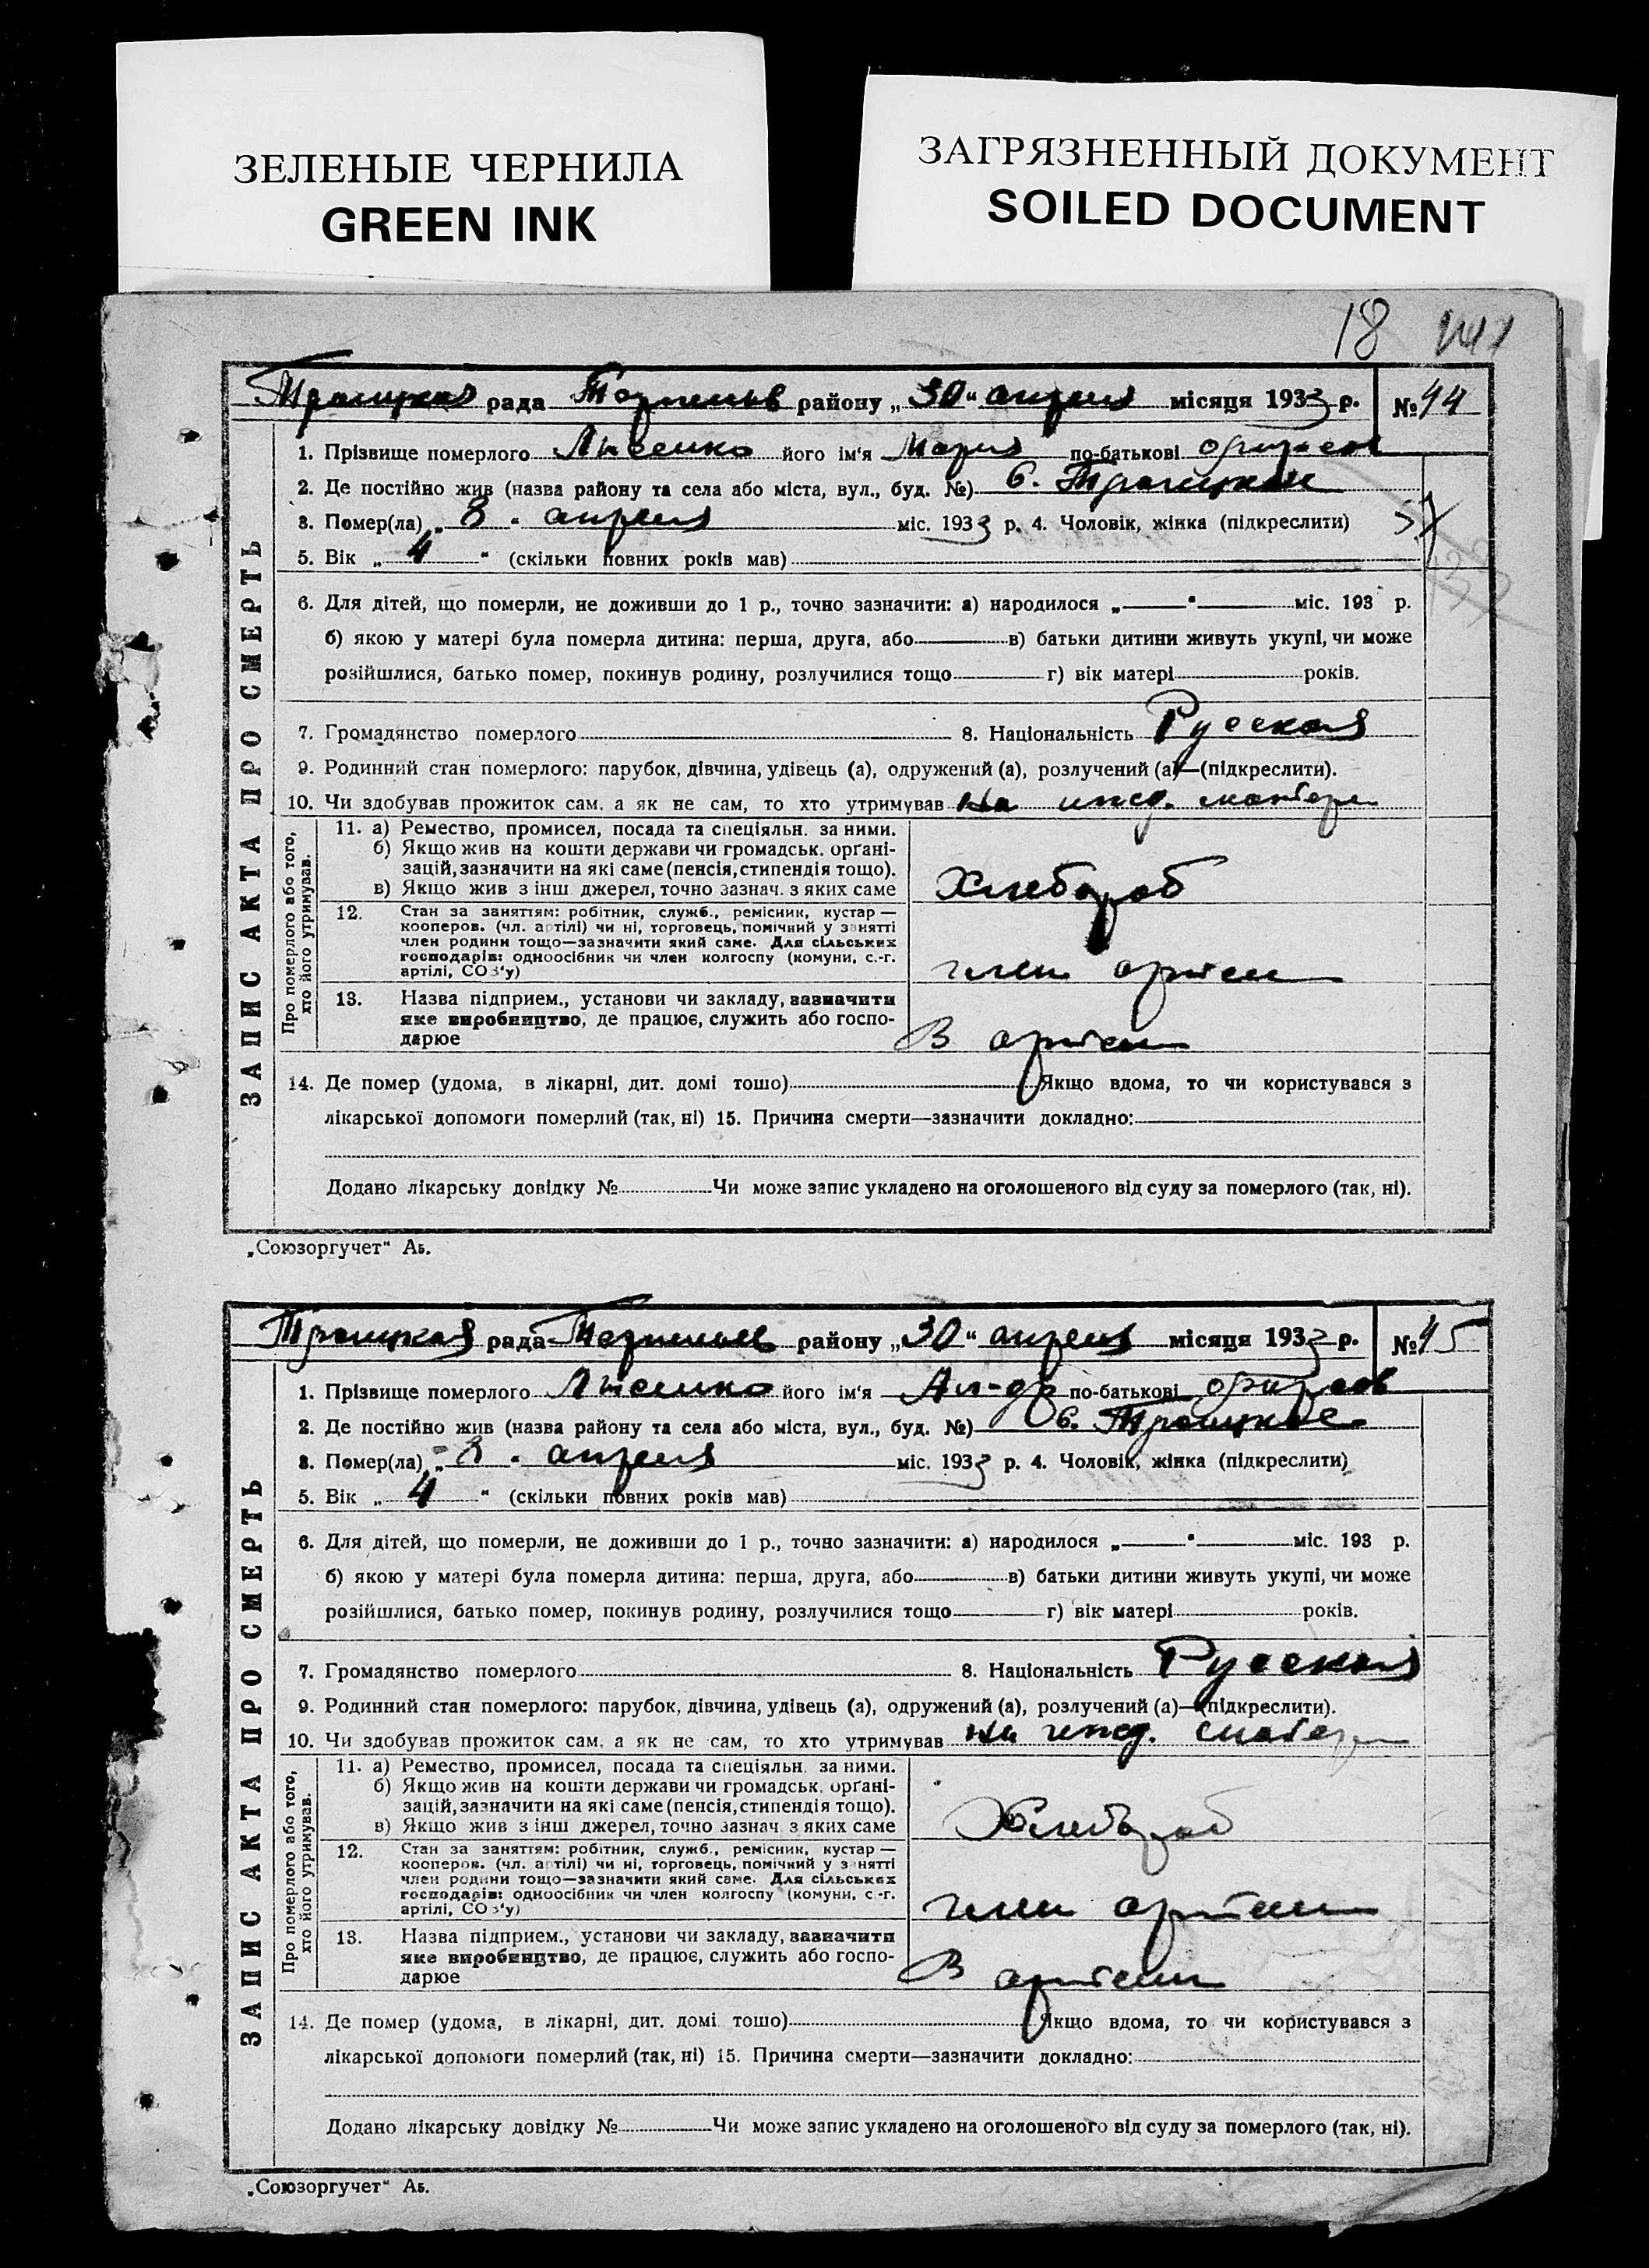 ЗЕЛЕНЫЕ ЧЕРНИЛА
GREEN INK
ЗАГРЯЗНЕННЫЙ ДОКУМЕНТ
SOILED DOCUMENT
18
Троицкая рада района „30“ апреля місяця 1933 р. № 44
ЗАПИС АКТА ПРО СМЕРТЬ
1. Прізвище померлого Лысенко його ім'я Мария по-батькові
2. Де постійно жив (назва району та села або міста, вул., буд. №) с. Троицкое
3. Помер(ла) „8“ апреля міс. 1933 р. 4. Чоловік, жінка (підкреслити)
5. Вік „4“ (скільки повних років мав)
6. Для дітей, що померли, не доживши до 1 р., точно зазначити: а) народилося „—“ міс. 193 р.
б) якою у матері була померла дитина: перша, друга, або — в) батьки дитини живуть укупі, чи може
розійшлися, батько помер, покинув родину, розлучилися тощо — г) вік матері років.
7. Громадянство померлого 8. Національність Русская
9. Родинний стан померлого: парубок, дівчина, удівець (а), одружений (а), розлучений (а)—(підкреслити).
10. Чи здобував прожиток сам, а як не сам, то хто утримував на ижд. матери
Про померлого або того, хто його утримував.
11. а) Ремество, промисел, посада та спеціяльн. за ними.
б) Якщо жив на кошти держави чи громадськ. орґані-
зацій, зазначити на які саме (пенсія, стипендія тощо).
в) Якщо жив з інш джерел, точно зазнач. з яких саме
Хлебороб
12. Стан за заняттям: робітник, служб., ремісник, кустар —
кооперов. (чл. артілі) чи ні, торговець, помічний у занятті
член родини тощо—зазначити який саме. Для сільських
господарів: одноосібник чи член колгоспу (комуни, с.-г.
артілі, СОЗ'у)
член артели
13. Назва підприєм., установи чи закладу, зазначити
яке виробництво, де працює, служить або госпо-
дарює
В артели
14. Де помер (удома, в лікарні, дит. домі тошо) Якщо вдома, то чи користувався з
лікарської допомоги померлий (так, ні) 15. Причина смерти—зазначити докладно:
Додано лікарську довідку № Чи може запис укладено на оголошеного від суду за померлого (так, ні).
„Союзоргучет“ А5.
Троицкая рада району „30“ апреля місяця 1933 р. № 45
ЗАПИС АКТА ПРО СМЕРТЬ
1. Прізвище померлого Лысенко його ім'я Ал-др по-батькові
2. Де постійно жив (назва району та села або міста, вул., буд. №) с. Троицкое
3. Помер(ла) „8“ апреля міс. 1933 р. 4. Чоловік, жінка (підкреслити)
5. Вік „4“ (скільки повних років мав)
6. Для дітей, що померли, не доживши до 1 р., точно зазначити: а) народилося „—“ міс. 193 р.
б) якою у матері була померла дитина: перша, друга, або — в) батьки дитини живуть укупі, чи може
розійшлися, батько помер, покинув родину, розлучилися тощо — г) вік матері років.
7. Громадянство померлого 8. Національність Русская
9. Родинний стан померлого: парубок, дівчина, удівець (а), одружений (а), розлучений (а)—(підкреслити).
10. Чи здобував прожиток сам, а як не сам, то хто утримував на ижд. матери
Про померлого або того, хто його утримував.
11. а) Ремество, промисел, посада та спеціяльн. за ними.
б) Якщо жив на кошти держави чи громадськ. орґані-
зацій, зазначити на які саме (пенсія, стипендія тощо).
в) Якщо жив з інш джерел, точно зазнач. з яких саме
Хлебороб
12. Стан за заняттям: робітник, служб., ремісник, кустар —
кооперов. (чл. артілі) чи ні, торговець, помічний у занятті
член родини тощо—зазначити який саме. Для сільських
господарів: одноосібник чи член колгоспу (комуни, с.-г.
артілі, СОЗ'у)
член артели
13. Назва підприєм., установи чи закладу, зазначити
яке виробництво, де працює, служить або госпо-
дарює
В артели
14. Де помер (удома, в лікарні, дит. домі тошо) Якщо вдома, то чи користувався з
лікарської допомоги померлий (так, ні) 15. Причина смерти—зазначити докладно:
Додано лікарську довідку № Чи може запис укладено на оголошеного від суду за померлого (так, ні).
„Союзоргучет“ А5.